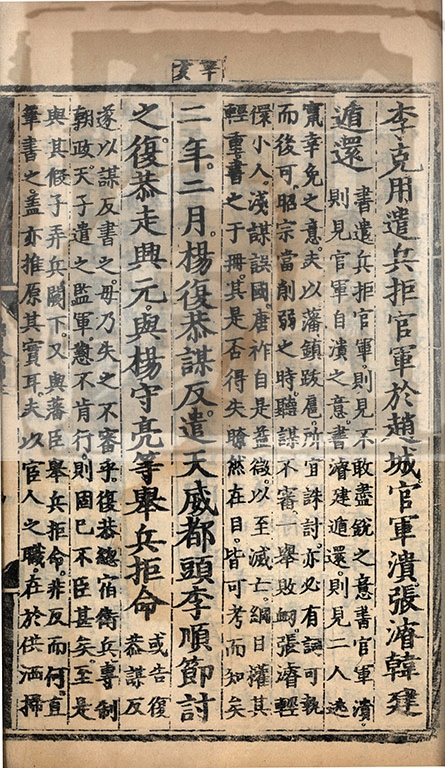 辛亥
李克用遣兵拒官軍於趙城官軍潰張濬韓建
遁還
書遣兵拒官軍則見不敢盡銳之意書官軍潰
則見官軍自潰之意書濬建遁還則見二人逃
竄幸免之意夫以藩鎮跋扈所宜誅討亦必有詞可執
而後可昭宗當削弱之時聽謀不審一舉敗衂張濬輕
僳小人淺謀誤國唐祚自是益微以至滅亡綱目權其
輕重書之于冊其是否得失瞭然在目皆可考而知矣
二年二月楊復恭謀反遣天威都頭李順節討
之復恭走興元與楊守亮等舉兵拒命
或告復
恭謀反
遂以謀反書之毋乃失之不審乎復恭總宿衛兵專制
朝政天子遣之監軍懟不肯行則固已不臣甚矣至是
與其假子弄兵闕下又與藩臣舉兵拒命非反而何直
筆書之蓋亦推原其實耳夫以官人之職在於供洒掃